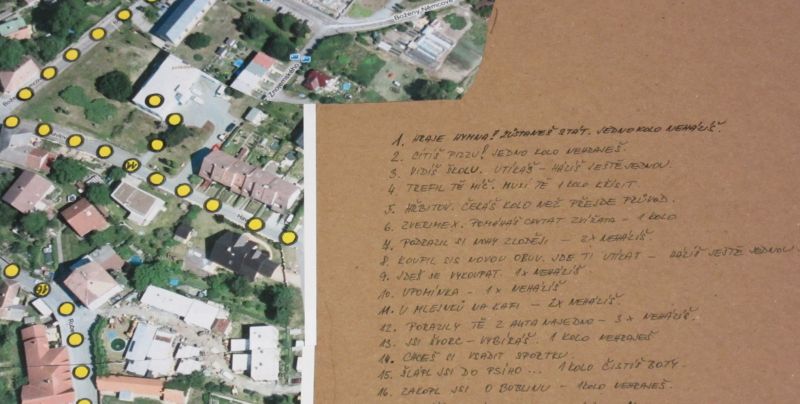 Boženy Němcové
Znojemského
1. HRAJE HYMNA! ZŮSTANEŠ STÁT. JEDNO KOLO NEHÁZÍŠ.
2. CÍTÍŠ PIZZU! JEDNO KOLO NEHRAJEŠ.
3. VIDÍŠ ŠKOLU. UTÍKÁŠ – HÁZÍŠ JEŠTĚ JEDNOU.
4 TREFIL TĚ MÍČ. MUSÍ TĚ 1 KOLO KŘÍSIT.
5. HŘBITOV. ČEKÁŠ KOLO NEŽ PŘEJDE PRŮVOD.
6. ZVERIMEX. POMÁHÁŠ CHYTAT ZVÍŘATA – 1 KOLO
7. PODRAZIL SI NOHY ZLODĚJI – 2x NEHÁZÍŠ.
8. KOUPIL SIS NOVOU OBUV. JDE TI UTÍKAT – HÁZÍŠ JEŠTĚ JEDNOU
9. JDEŠ SE VYKOUPAT. 1x NEHÁZÍŠ
10. UPOMÍNKA – 1x NEHÁZÍŠ
11. U MLEJNKŮ NA KAFI – 2x NEHÁZÍŠ.
12. PORAZILY TĚ 2 AUTA NAJEDNO – 3x NEHÁZÍŠ.
13. JSI ŠVORC – VYBÍRÁŠ. 1 KOLO NEHRAJEŠ
14. CHCEŠ SI VSADIT SPORTKU.
15. ŠLÁPL JSI DO PSÍHO ... 1 KOLO ČISTÍŠ BOTY.
16. ZAKOPL JSI O BUBLINU – 1 KOLO NEHRAJEŠ.